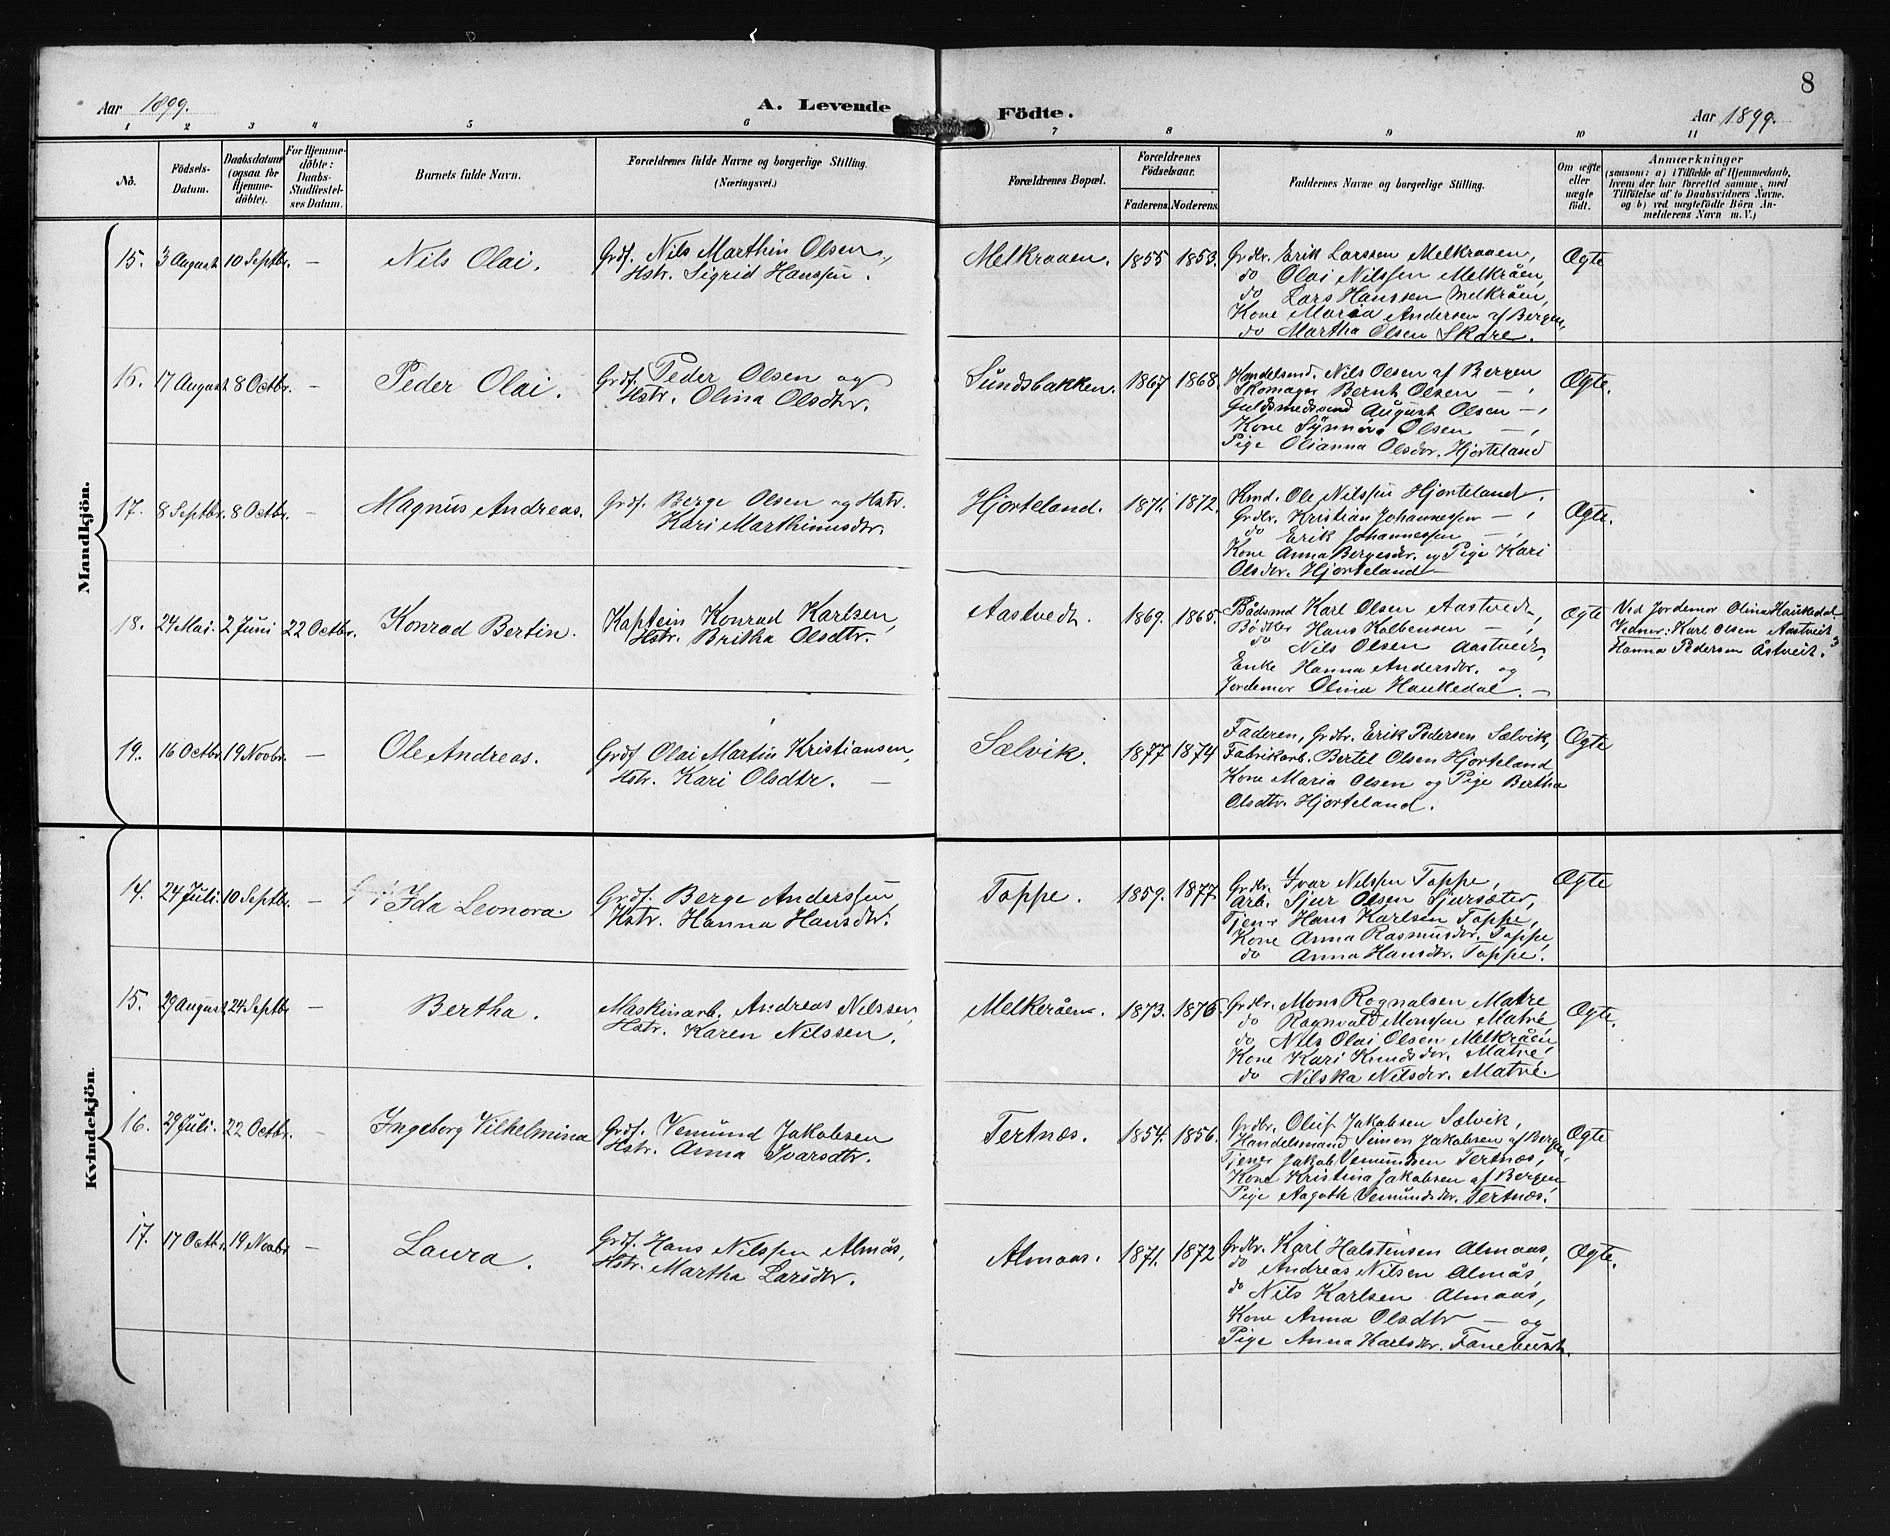 8
Aar 1899. A. Levende Födte. Aar 1899.
1 2 3 4 5 6 7 8 9 10 11
No. Födsels-Datum. Daabsdatum (ogsaa for Hjemmedöbte). For Hjemmedöbte: Daabs-Stadfæstelses Datum. Barnets fulde Navn. Forældrenes fulde Navne og borgerlige Stilling. (Næringsvei.) Forældrenes Bopæl. Forældrenes Födselsaar. Faderens. Moderens. Faddernes Navne og borgerlige Stilling. Om ægte eller uægte födt. Anmærkninger (saasom: a) i Tilfælde af Hjemmedaab, hvem der har forrettet samme, med Tilföielse af to Daabsvidners Navne. og b) ved uægtefödte Börn Anmelderens Navn m. V.)
Mandkjön.
15. 3 August 10 Septbr. — Nils Olai. Grdf. Nils Marthin Olsen, Melkraaen. 1855 1853. Grdbr. Erik Larssen Melkraaen, Ægte
Hstr. Sigrid Hanssen. do Olai Nilssen Melkråen,
do Lars Hanssen Melkråen,
Kone Maria Andersen af Bergen,
do Martha Olsen Skare.
16. 17 August 8 Octbr. — Peder Olai. Grdf. Peder Olsen og Sundsbakken. 1867 1868. Handelsmd. Nils Olsen af Bergen Ægte.
Hstr. Olina Olsdtr. Skomager Bernt Olsen — ,
Guldsmedsvend August Olsen — ,
Kone Synnøva Olsen — ,
Pige Olianna Olsdtr. Hjorteland
17. 8 Septbr. 8 Octbr. — Magnus Andreas. Grdf. Berge Olsen og Hstr. Hjorteland. 1871. 1872. Kmd. Ole Nilssen Hjorteland, Ægte.
Kari Marthinusdtr. Grdbr. Kristian Johannessen — ,
do Erik Johannessen — ,
Kone Anna Bergesdtr. og Pige Kari
Olsdtr. Hjorteland —
18. 24 Mai. 2 Juni 22 Octbr. Konrad Bertin. Kaptein Konrad Karlsen, Aastvedt 1869. 1865. Bådsmd Karl Olsen Aastvedt, Ægte Ved Jordemor Olina Haukedal.
Hstr. Britha Olsdtr. Bødker Hans Kolbensen — , Vidner: Karl Olsen Aastveit
do Nils Olsen Aastvedt, Hanna Pedersen Åstveit.
Enke Hanna Andersdtr. og
Jordemor Olina Haukedal. —
19. 16 Octbr. 19 Novbr. — Ole Andreas. Grdf Olai Martin Kristiansen, Sælvik. 1877 1874 Faderen, Grdbr. Erik Pedersen Sælvik, Ægte
Hstr. Kari Olsdtr. — Fabrikarb. Bertel Olsen Hjorteland,
Kone Maria Olsen og Pige Bertha
Olsdtr. Hjorteland.
Kvindekjön.
14. 24 Juli. 10 Septbr. — Ida Leonora. Grdf. Berge Anderssen Toppe. 1859. 1877. Grdbr. Ivar Nilssen Toppe, Ægte
Hstr. Hanna Hansdtr. Arb. Sjur Olsen Sjursæter,
Tjener Hans Karlsen Toppe,
Kone Anna Rasmusdtr. Toppe,
do Anna Hansdtr. Toppe.
15. 29 August 24 Septbr — Bertha. Maskinarb. Andreas Nilssen, Melkeråen. 1873. 1876. Grdbr. Mons Rognalsen Matre Ægte.
Hstr. Karen Nilssen. do Rognvald Monssen Matre,
do Nils Olai Olsen Melkråen,
Kone Kari Knudsdtr. Matre,
do Nilska Nilsdtr. Matre.
16. 29 Juli. 22 Octbr. — Ingeborg Vilhelmina Grdf. Vemund Jakobsen Tertnæs. 1854. 1856. Grdbr. Oluf Jakobsen Sælvik, Ægte
Hstr. Anna Ivarsdtr. Handelsmand Simon Jakobsen af Bergen,
Tjener Jakob Vemundsen Tertnæs,
Kone Kristina Jakobsen af Bergen,
Pige Aagoth Vemundsdtr. Tertnæs.
17. 17 Octbr. 19 Novbr — Laura. Grdf. Hans Nilssen Almås, Almaas. 1871. 1872 Grdbr. Karl Halstensen Almaas, Ægte.
Hstr. Martha Larsdtr. do Andreas Nilsen Almås,
do Nils Karlsen Almaas,
Kone Anna Olsdtr — og
Pige Anna Karlsdtr. Fanebust.